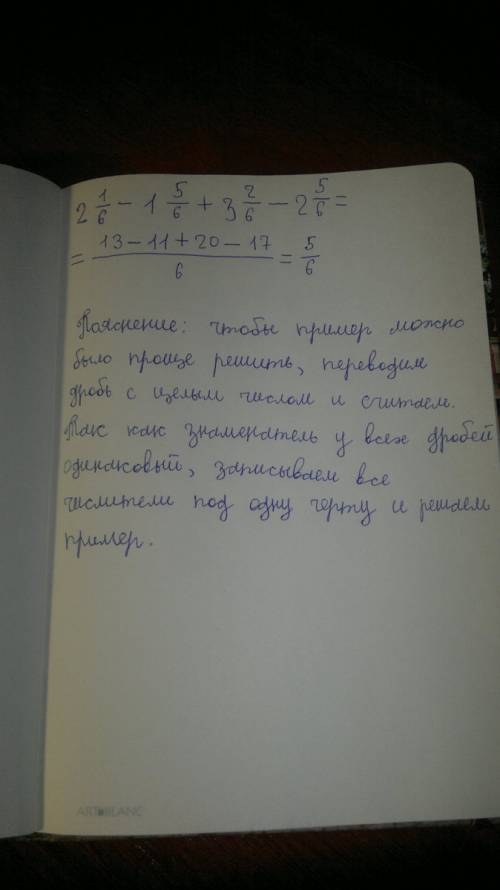 2 1/6 − 1 5/6 + 3 2/6 − 2 5/6 =
= (13 − 11 + 20 − 17)/6 = 5/6
Пояснение: чтобы пример можно
было проще решить, переводим
дробь с целым числом и считаем.
Так как знаменатель у всех дробей
одинаковый, записываем все
числители под одну черту и решаем
пример.
ARTBLANC